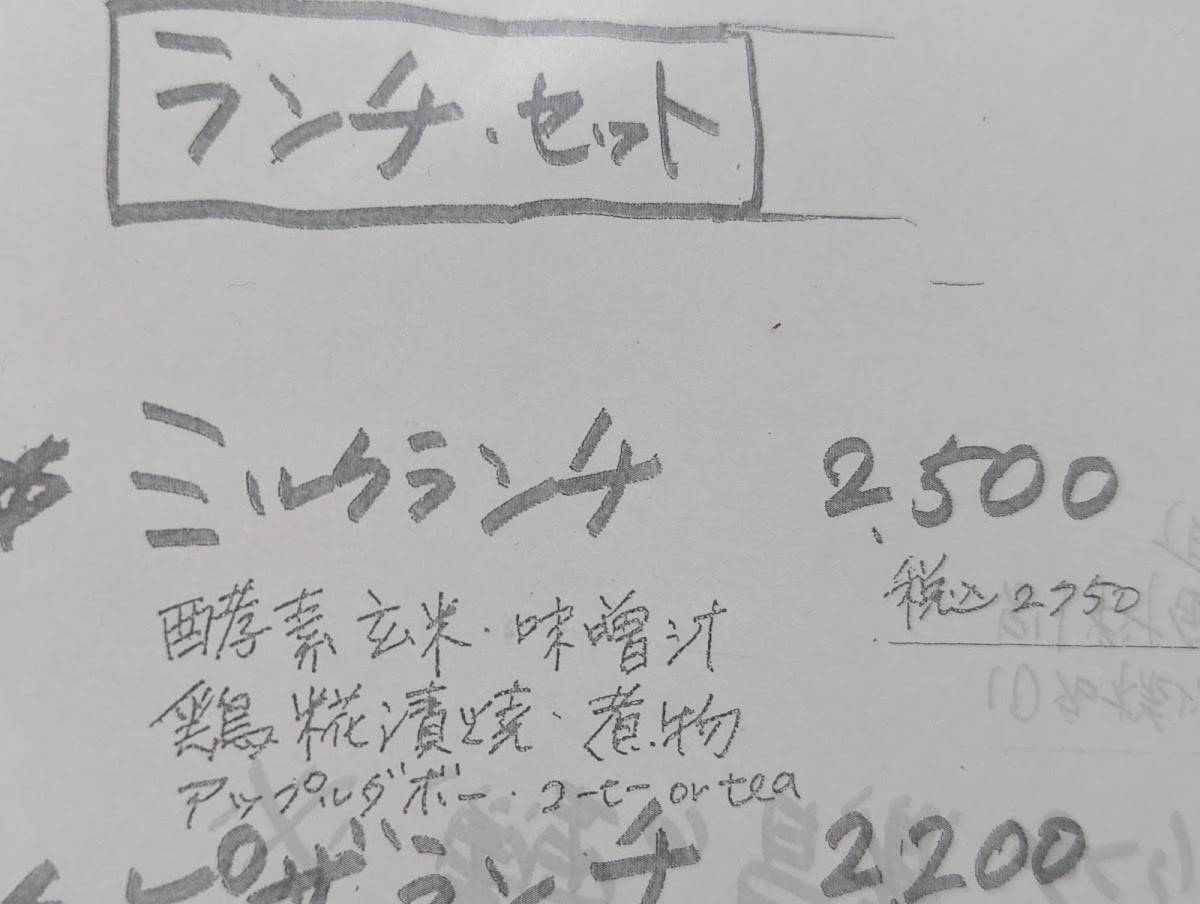 ランチ・セット
ミルクランチ 2,500
税込 2750
酵素玄米・味噌汁
鶏糀漬焼・煮物
アップルダボー・コーヒー or tea
ピザランチ 2,200